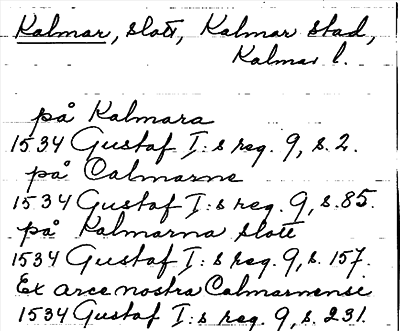 Kalmar, slott, Kalmar stad,
Kalmar l.
på Kalmara
1534 Gustaf I:s reg. 9, s. 2.
på Calmarne
1534 Gustaf I:s reg. 9, s. 85.
på Kalmarna slott
1534 Gustaf I:s reg. 9, s. 157.
Ex arce nostra Calmarnensi
1534 Gustaf I:s reg. 9, s. 231.